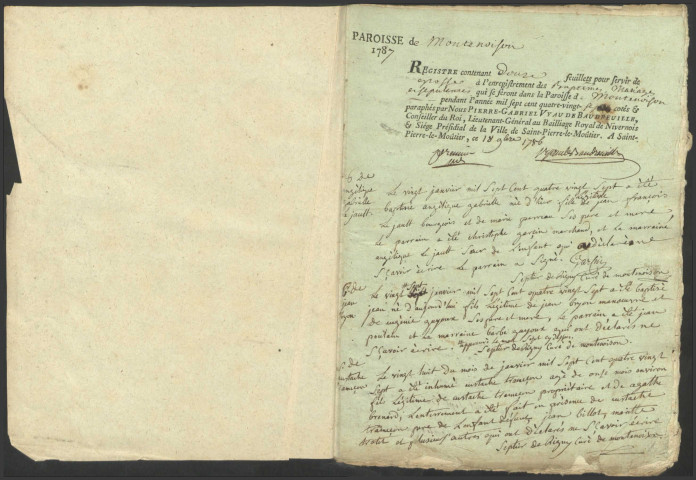 PAROISSE de Montenoison
1787
REGISTRE contenant Douze feuillets pour servir de
grosse à l'enregistrement des Baptême, Mariage
et sépultures qui se feront dans la Paroisse d Montenoison
pendant l'année mil sept cent quatre-vingt- sept cotés &
paraphés par Nous PIERRE-GABRIEL VYAU DE BAUDREUILLE,
Conseiller du Roi, Lieutenant-Général au Bailliage Royal de Nivernois
& Siége Présidial de la Ville de Saint-Pierre-le-Moûtier. A Saint-
Pierre-le-Moûtier, ce 18 9bre 1786
B de
angélique
gabrielle
jault
Le vingt janvier mil Sept Cent quatre vingt Sept a été
baptisée angélique gabrielle née d'hier fille légitime de jean françois
jault bourgeois et de marie perreau Ses pere et mere,
le parrain a été christophe garsin marchand, et la marraine
angélique jault Sœur de l'enfant qui a déclaré ne
Sçavoir écrire le parrain a Signé. Garsin
Septier de Rigny Curé de montenoison
B de
jean
Le vingt Sept janvier mil Sept Cent quatre vingt Sept a été baptisé
jean né d'aujourd'hui fils légitime de jean bryon manœuvre et
de eugénie gayoux Ses pere et mere, le parrain a été jean
poulain et la marraine barbe gayoux qui ont déclarés ne
Sçavoir écrire. approuvé le mot Sept cy dessus
Septier de Rigny Curé de montenoison.
S. de
eustache
trameçon
Le vingt huit du mois de janvier mil Sept Cent quatre vingt
Sept a été inhumé eustache trameçon agé de onze mois environ
fils légitime de eustache trameçon propriétaire et de agathe
, L'enterrement a été fait en présence de eustache
trameçon pere de l'enfant défunt, jean billot,
et plusieurs autres qui ont déclarés ne Sçavoir écrire
Septier de Rigny Curé de montenoison.